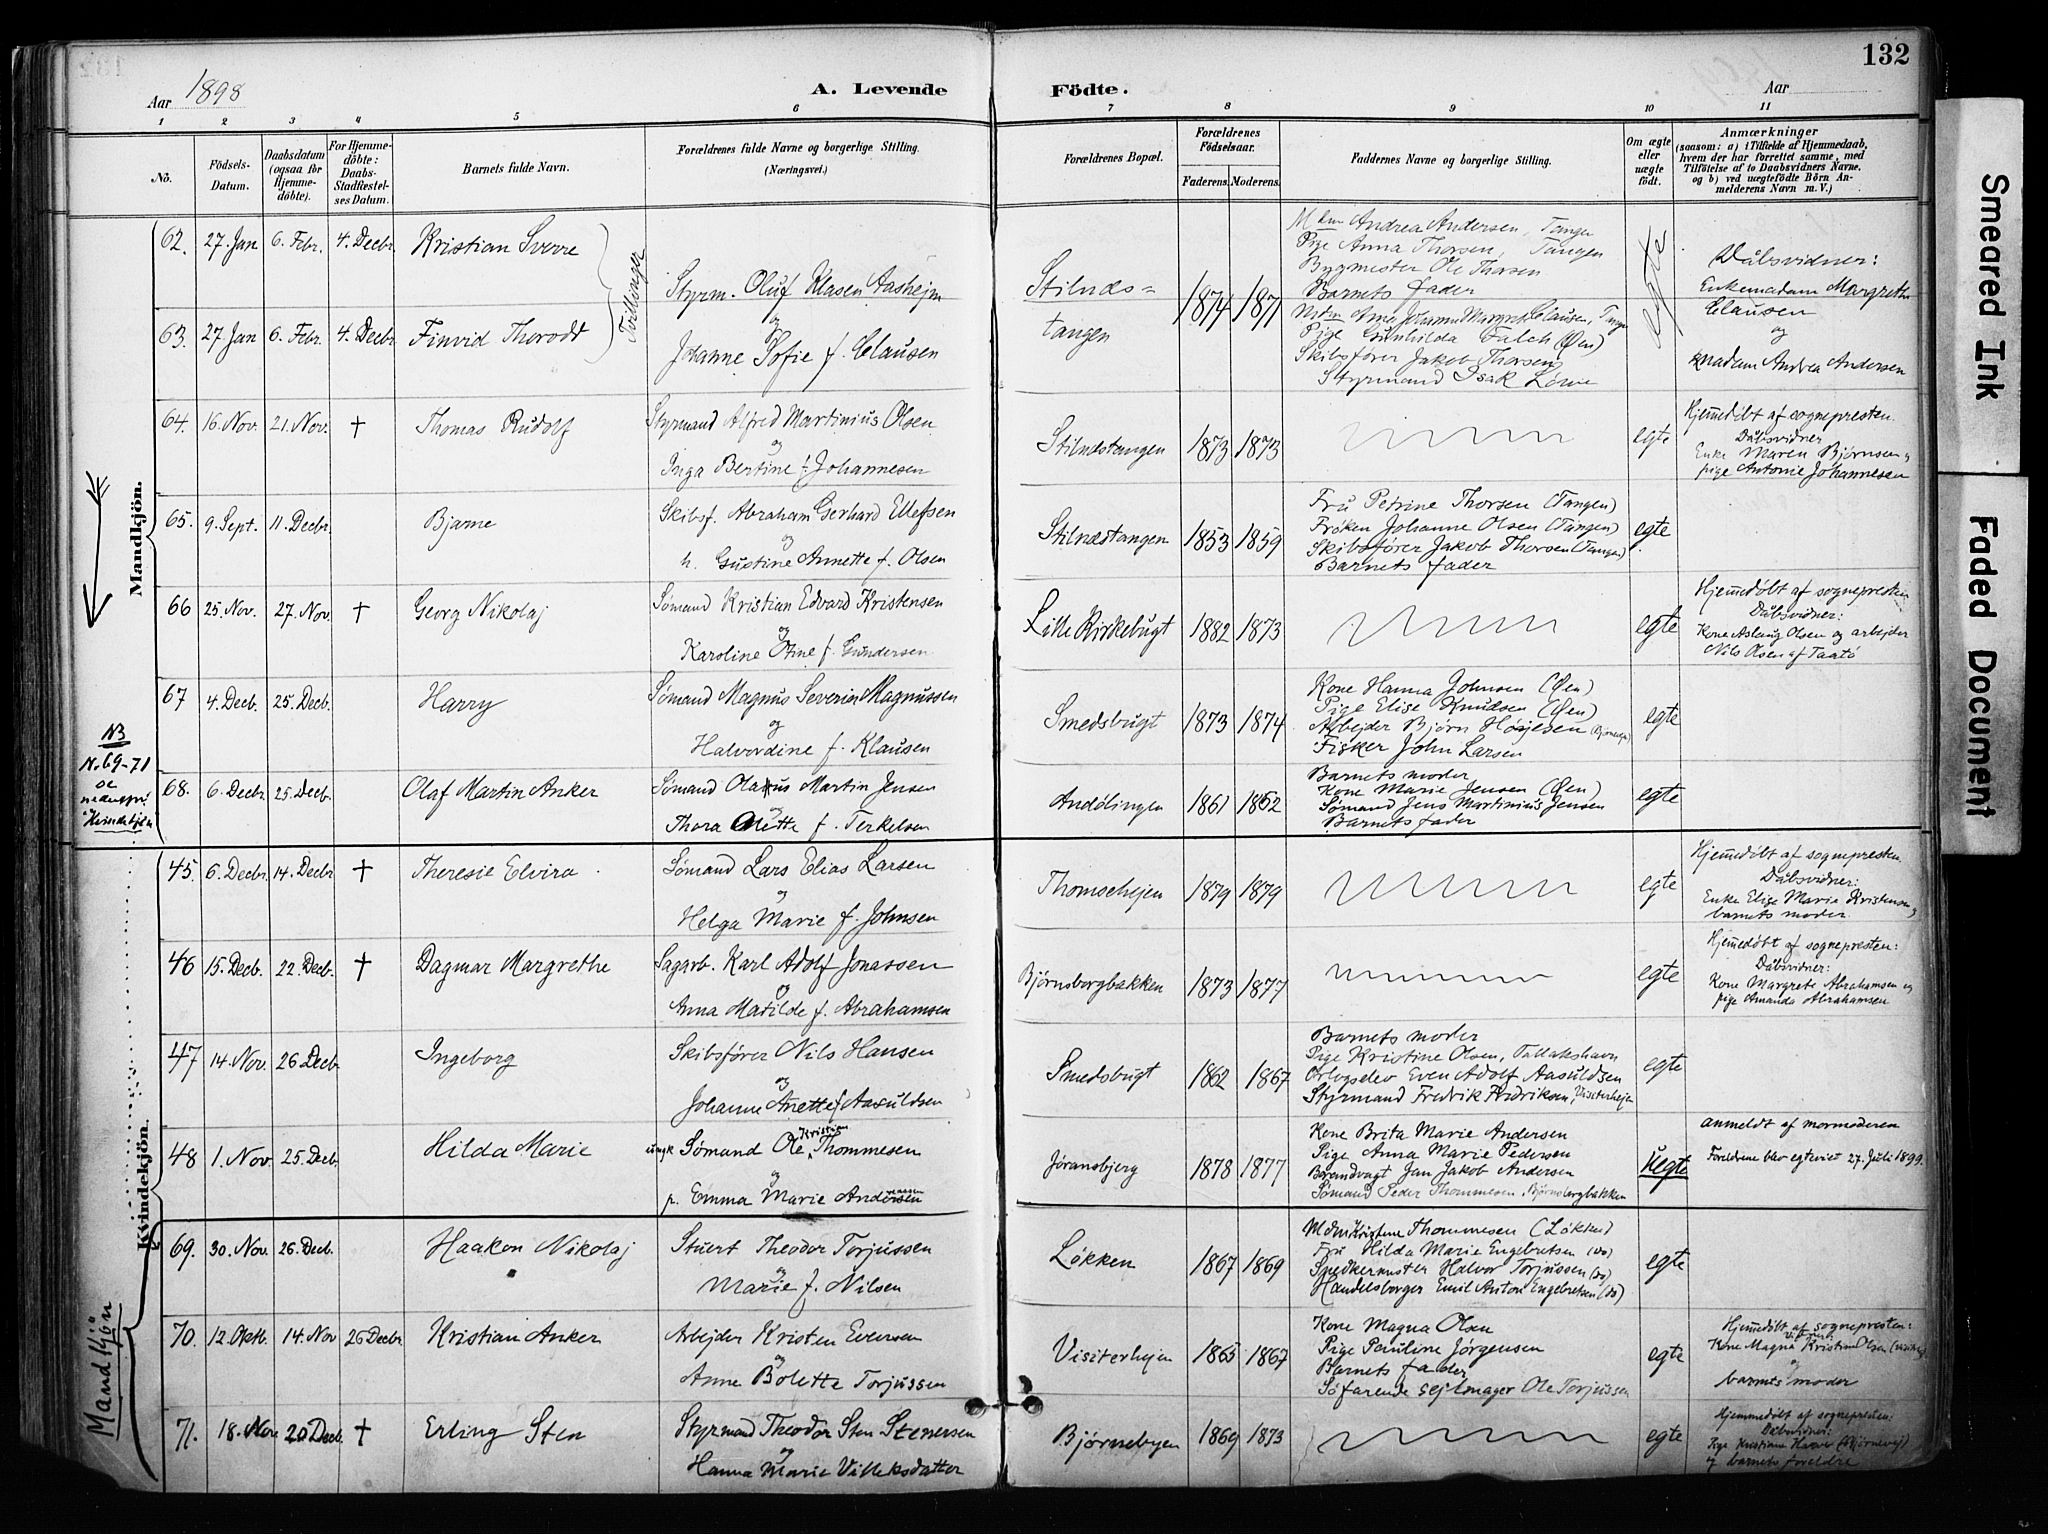 132
Aar 1898
A. Levende Födte.
Aar
1 2 3 4 5 6 7 8 9 10 11
No.
Födsels-Datum.
Daabsdatum (ogsaa for Hjemme-döbte).
For Hjemme-döbte: Daabs-Stadfæstel-ses Datum.
Barnets fulde Navn.
Forældrenes fulde Navne og borgerlige Stilling. (Næringsvei.)
Forældrenes Bopæl.
Forældrenes Födselsaar.
Faderens. Moderens.
Faddernes Navne og borgerlige Stilling.
Om ægte eller uægte födt.
Anmærkninger
(saasom: a) i Tilfælde af Hjemmedaab, hvem der har forrettet samme, med Tilföielse af to Daabsvidners Navne, og b) ved uægtefödte Börn An-melderens Navn m. V.)
Mandkjön.
62. 27. Jan 6. Febr. 4. Decbr. Kristian Sverre
63. 27. Jan 6. Febr. 4. Decbr. Finvid Thorodd
Tvillinger
Styrm. Oluf Klasen Aashejm
og
Johanne Sofie f. Clausen
Stilnæs-
tangen
1874 1871
Andrea Andersen, Tangen
Pige Anna Thorsen, Tangen
Bygmester Ole Thorsen
Barnets fader
Johanne Margreth Clausen,
Pige Gunhilda Falch (Øen)
Skibsfører Jakob Thorsen
Styrmand Isak
egte
Dåbsvidner:
Enkemadam Margrethe
Clausen
og
madam Andrea Andersen
64. 16. Nov. 21. Nov. † Thomas Rudolf
Styrmand Alfred Martinius Olsen
og
Inga Bertine f. Johannesen
Stilnæstangen 1873 1873
egte
Hjemmedøbt af sognepresten.
Dåbsvidner
Enke Maren Bjørnsen og
pige Antonie Johannesen
65. 9. Sept. 11. Decbr. Bjarne
Skibsf. Abraham Gerhard Ellefsen
og
h. Gustine Annette f. Olsen
Stilnæstangen 1853 1859
Fru Petrine Thorsen (Tangen)
Frøken Johanne Olsen (Tangen)
Skibsfører Jakob Thorsen (Tangen)
Barnets fader
egte
66 25. Nov. 27. Nov. † Georg Nikolaj
Sømand Kristian Edvard Kristensen
og
Karoline Otine f. Gundersen
Lille Kirkebugt 1882 1873
egte
Hjemmedøbt af sognepresten
Dåbsvidner:
Kone Aslaug Olsen og arbejder
Nils Olsen af Taatø
67 4. Decb. 25. Decb. Harry
Sømand Magnus Severin Magnussen
og
Halvordine f. Klausen
Smedsbugt 1873 1874
Kone Hanna Johnsen (Øen)
Pige Elise Knudsen (Øen)
Arbejder Bjørn
Fisker John Larsen
egte
NB
N. 69-71
se
nedenfor
"Kvindekjøn"
68. 6. Decbr 25. Decb. Olaf Martin Anker
Sømand Olaus Martin Jensen
og
Thora Olette f. Terkelsen
1861 1862
Barnets moder
Kone Marie Jensen (Øen)
Sømand Jens Martinius Jensen
Barnets fader
egte
Kvindekjön.
45. 6. Decbr 14. Decbr † Theresie Elvira
Sømand Lars Elias Larsen
og
Helga Marie f. Johnsen
Thomsehejen 1879 1879
egte
Hjemmedøbt af sognepresten.
Dåbsvidner:
Enke Elise Marie Kristensen og
barnets moder.
46 15. Decb. 22. Decb. † Dagmar Margrethe
Sagarb. Karl Adolf Jonassen
og
Anna Matilde f. Abrahamsen
Bjørnsborgbakken 1873 1877
egte
Hjemmedøbt af sognepresten:
Dåbsvidner:
Kone Margrete Abrahamsen og
pige Amanda Abrahamsen
47 14. Nov. 26 Decb. Ingeborg
Skibsfører Nils Hansen
og
Johanne Anette f. Aasuldsen
Smedsbugt 1862 1867
Barnets moder
Pige Kristine Olsen, Tallakshavn
Orlogselev Even Adolf Aasuldsen
Styrmand Fredrik Fredriksen, Visiterhejen
egte
48 1. Nov. 25. Decb. Hilda Marie
ungk Sømand Ole Kristian Thommesen
og
p. Emma Marie Andersen
Jøransbjerg 1878 1877
Kone Brita Marie Andersen
Pige Anna Marie Pedersen
Brandvagt Jan Jakob Andersen
Sømand Peder Thommesen, Bjørnsborgbakken
uegte
anmeldt af mormoderen
Foreldrene blev egteviet 27. Juli 1899.
Mandkjøn
69. 30. Nov. 26. Decb. Haakon Nikolaj
Stuert Theodor Torjussen
og
Marie f. Nilsen
Løkken 1867 1869
Mdm Kristine Thommesen (Løkken)
Fru Hilda Marie Engebretsen (do)
Snedkermester Halvor Torjussen (do)
Handelsborger Emil Anton Engebretsen (do)
egte
70. 12. Oktb. 14. Nov 26 Decbr Kristian Anker
Arbejder Kristen Eversen
og
Anne Bolette Torjussen
Visiterhejen 1865 1867
Kone Magna Olsen
Pige Pauline Jørgensen
Barnets fader
Søfarende sejlmager Ole Torjussen
egte
Hjemmedøbt af sognepresten:
Kone Magna Kristian Olsen
og
barnets moder
71. 18. Nov 20 Decb. † Erling Sten
Styrmand Theodor Sten Stenersen
og
Hanna Marie Villeksdatter
Bjørnebyen 1869 1873
egte
Hjemmedøbt af sognepresten:
Dåbsvidner:
Pige Kristiane
og barnets foreldre
Smeared Ink
Faded Document